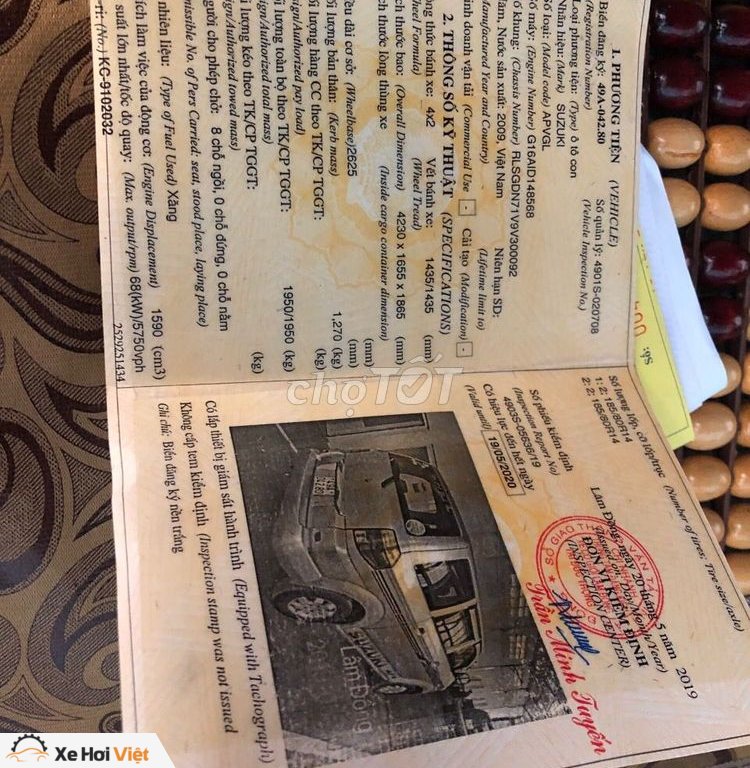 1. PHƯƠNG TIỆN (VEHICLE)
Biển đăng ký: 49A-042.80 Số quản lý: 4901S-020708
(Registration Number) (Vehicle Inspection No.)
Loại phương tiện: (Type) ô tô con
Nhãn hiệu: (Mark) SUZUKI
Số loại: (Model code) APVGL
Số máy: (Engine Number) G16AID148568
Số khung: (Chassis Number) RLSGDN71V9V300092
Năm, Nước sản xuất: 2009, Việt Nam Niên hạn SD:
(Manufactured Year and Country) (Lifetime limit to)
inh doanh vận tải (Commercial Use) Cải tạo (Modification)
2. THÔNG SỐ KỸ THUẬT (SPECIFICATIONS)
ông thức bánh xe: 4x2 Vết bánh xe: 1435/1435 (mm)
Wheel Formula) (Wheel Tread)
ích thước bao: (Overall Dimension) 4230 x 1655 x 1865 (mm)
ch thước lòng thùng xe (Inside cargo container dimension)
(mm)
ều dài cơ sở: (Wheelbase) 2625 (mm)
ối lượng bản thân: (Kerb mass) 1,270 (kg)
ối lượng hàng CC theo TK/CP TGGT: (kg)
sign/Authorized pay load)
i lượng toàn bộ theo TK/CP TGGT: 1950/1950 (kg)
sign/Authorized total mass)
lượng kéo theo TK/CP TGGT: (kg)
sign/Authorized towed mass)
người cho phép chở: 8 chỗ ngồi, 0 chỗ đứng, 0 chỗ nằm
missible No. of Pers Carried: seat, stood place, laying place)
nhiên liệu: (Type of Fuel Used) Xăng
tích làm việc của động cơ: (Engine Displacement) 1590 (cm3)
suất lớn nhất/tốc độ quay: (Max. output/rpm) 68(kW)/5750vph
ri: (No.) KC-9102032 2529251434
Số lượng lốp, cỡ lốp/trục (Number of tires; Tire size/axle)
1: 2; 185/80R14
2: 2; 185/80R14
Lâm Đồng, ngày 20 tháng 5 năm 2019
ĐƠN VỊ KIỂM ĐỊNH
(INSPECTION CENTER)
Số phiếu kiểm định
(Inspection Report No)
4903S-05636/19
Có hiệu lực đến hết ngày
(Valid until) 19/05/2020
Trần Minh Tuyến
SUZUKI
Lâm Đồng
Có lắp thiết bị giám sát hành trình (Equipped with Tachograph)
Không cấp tem kiểm định (Inspection stamp was not issued
Ghi chú: Biển đăng ký nền trắng
chợTỐT
Xe Hơi Việt